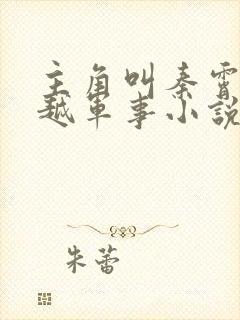 主角叫秦霄
越军事小说
朱蕾